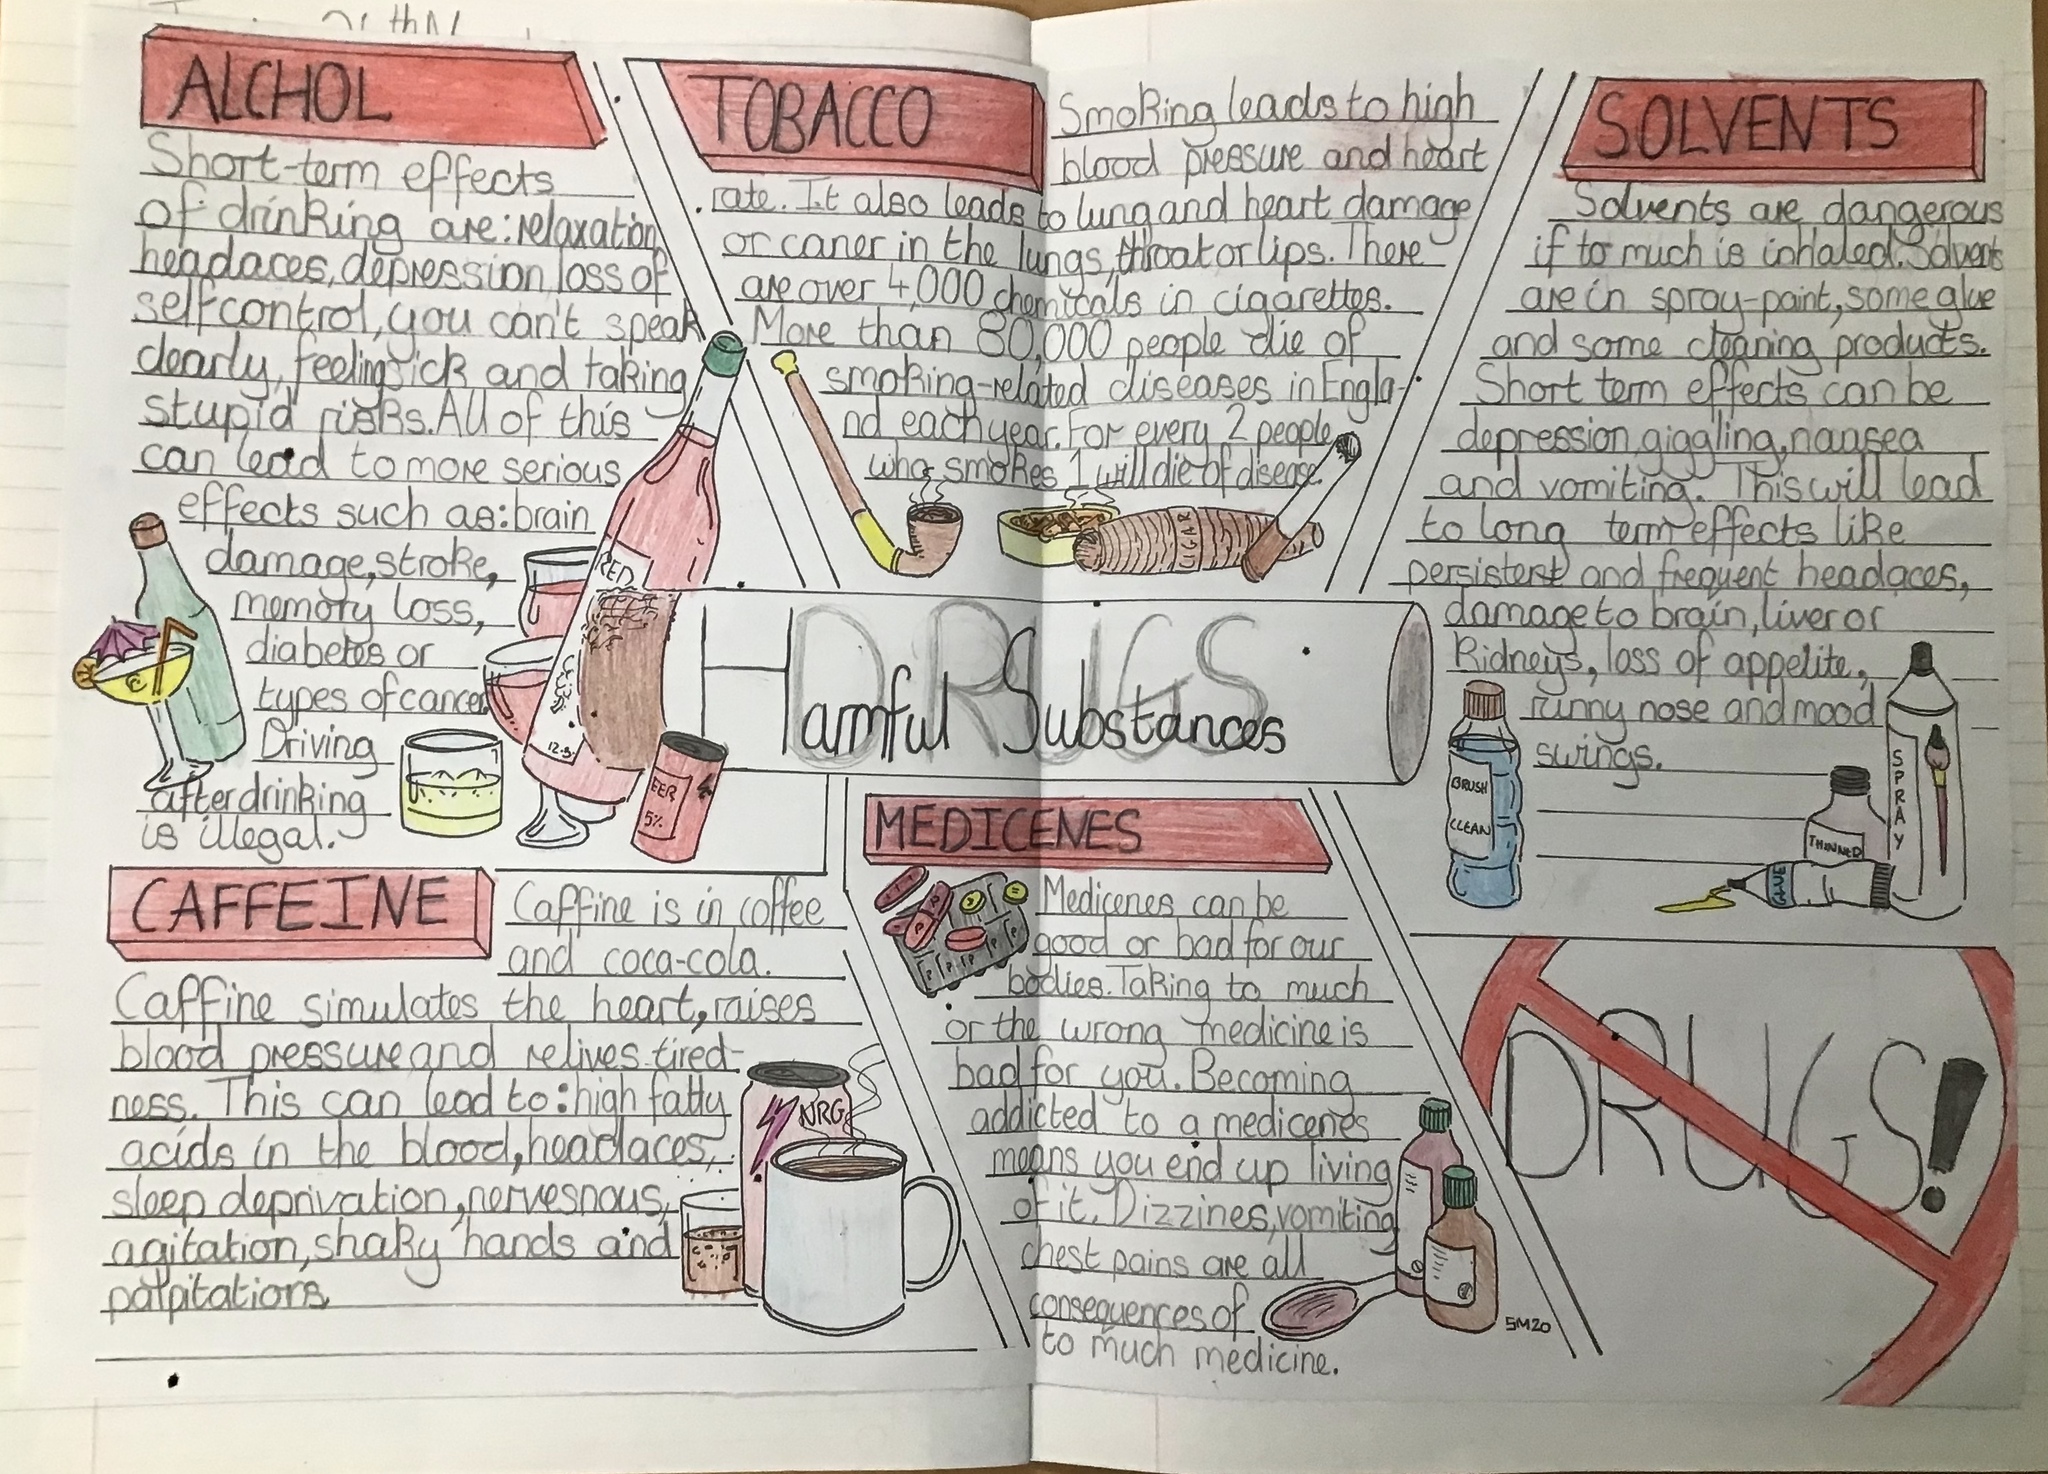 ALCHOL
Short-term effects
of drinking are: relaxation
headaces, depression, loss of
self control, you can't speak
clearly, feeling sick and taking
stupid risks. All of this
can lead to more serious
effects such as: brain
damage, stroke,
memory loss,
diabetes or
types of cancer.
Driving
after drinking
is illegal.
RED
12.5%
BEER
5%
TOBACCO
Smoking leads to high
blood pressure and heart
rate. It also leads to lung and heart damage
or caner in the lungs, throat or lips. There
are over 4,000 chemicals in cigarettes.
More than 80,000 people die of
smoking-related diseases in Engla-
nd each year. For every 2 people
who smokes 1 will die of disease.
CIGAR
SOLVENTS
Solvents are dangerous
if to much is inhaled. Solvents
are in spray-paint, some glue
and some cleaning products.
Short term effects can be
depression, giggling, nausea
and vomiting. This will lead
to long term effects like
persistent and frequent headaces,
damage to brain, liver or
kidneys, loss of appetite,
runny nose and mood
swings.
BRUSH
CLEAN
THINNER
SPRAY
GLUE
DRUGS
Harmful Substances
CAFFEINE
Caffine is in coffee
and coca-cola.
Caffine simulates the heart, raises
blood pressure and relives tired-
ness. This can lead to: high fatty
acids in the blood, headaces,
sleep deprivation, nervesnous,
agitation, shaky hands and
palpitations
NRG
MEDICENES
Medicenes can be
good or bad for our
bodies. Taking to much
or the wrong medicine is
bad for you. Becoming
addicted to a medicenes
means you end up living
of it. Dizzines, vomiting
chest pains are all
consequences of
to much medicine.
SM20
DRUGS!